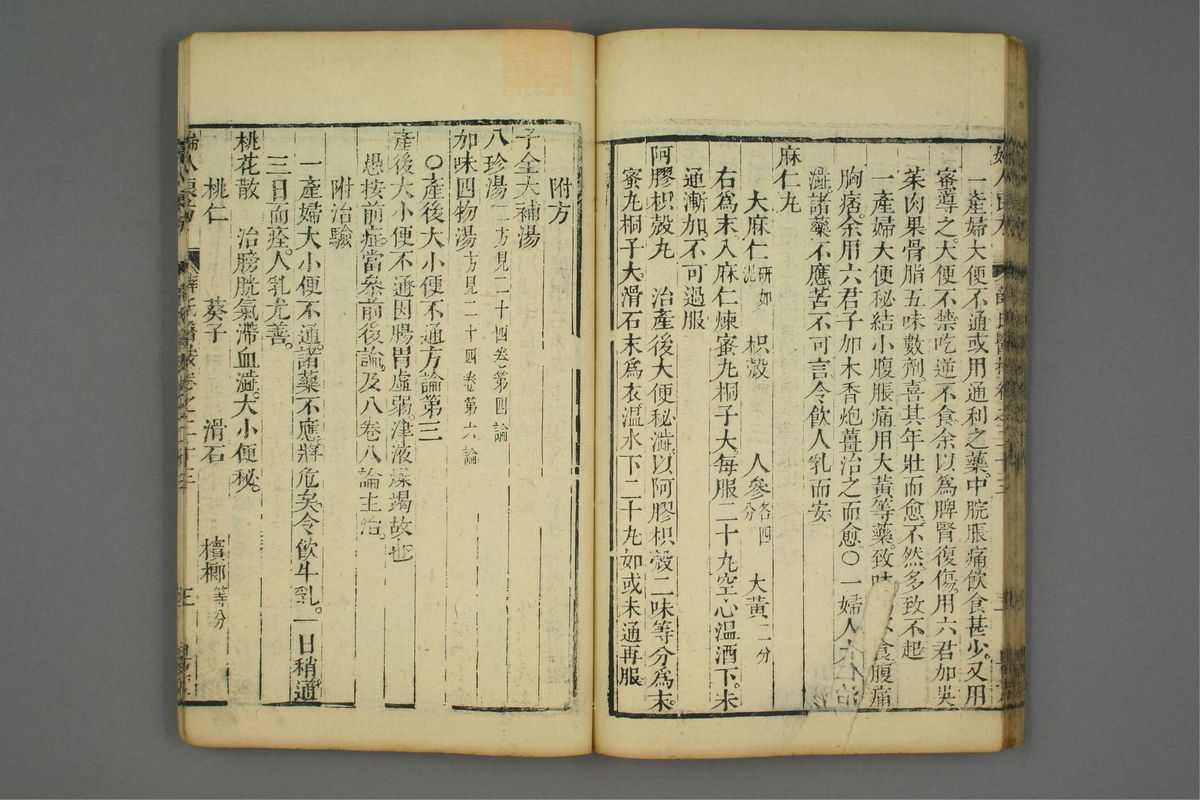 一產婦大便不通或用通利之藥。中脘脹痛飲食甚少。又用
蜜導之。大便不禁吃逆不食。余以為脾腎復傷。用六君加吳
茱肉果骨脂五味數劑。喜其年壯而愈。不然。多致不起
一產婦大便秘結小腹脹痛用大黃等藥。致 食腹痛
胸痞。余用六君子加木香炮薑治之而愈〇一婦人大
澁。諸藥不應。苦不可言令飲人乳而安。
麻仁丸
大麻仁研如泥 枳殼 人參各四分 大黃二分
右爲末。入麻仁煉蜜丸桐子大。每服二十丸空心温酒下。未
通漸加。不可過服
阿膠枳殼丸 治產後大便秘澁。以阿膠枳殼二味等分爲末。
蜜丸桐子大滑石末爲衣温水下二十丸如或未通再服
附方
子全大補湯
八珍湯二方見二十四卷第四論
加味四物湯方見二十四卷第六論
〇產後大小便不通方論第三
產後大小便不通因腸胃虛弱。津液燥竭故也
愚按前症。當叅前後論。及八卷八論主治。
附治驗
一產婦大小便不通。諸藥不應。將危矣。令飲牛乳。一日稍通
三日而痊。人乳尤善。
桃花散 治膀胱氣滯血澁。大小便秘。
桃仁 葵子 滑石 檳榔等分